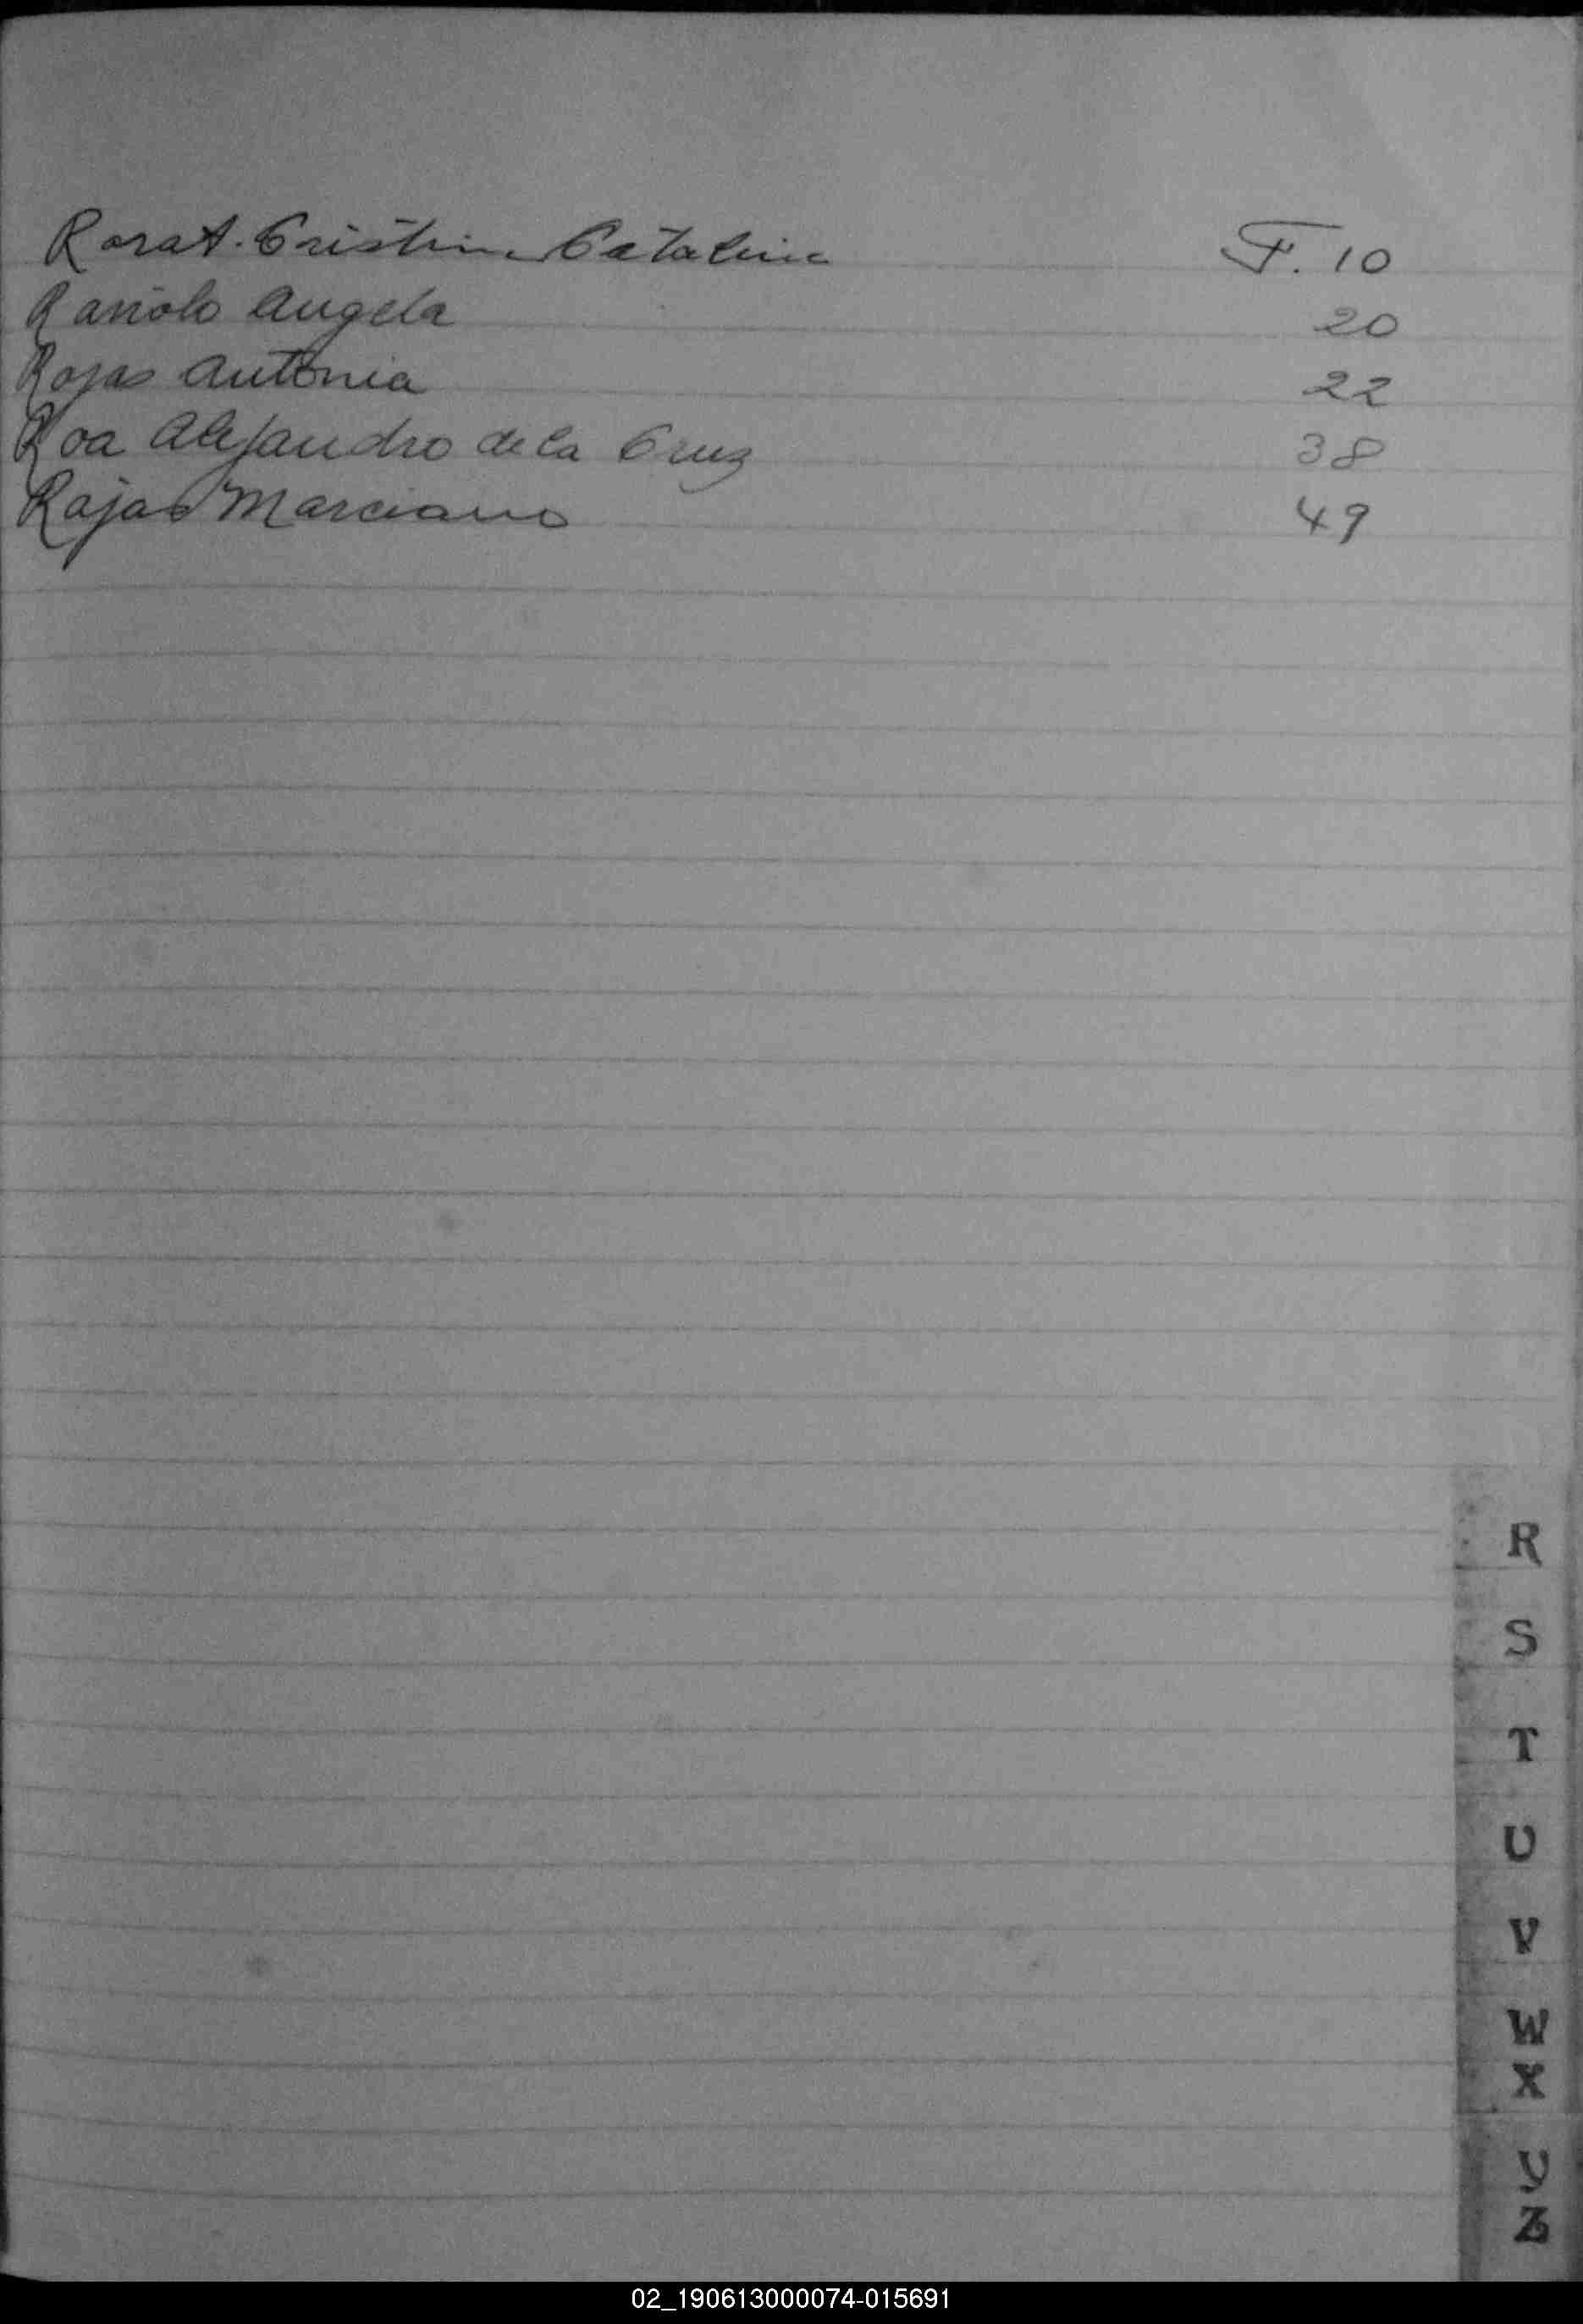 Rorat. Cristina Catalina F. 10
Rariolo Angela 20
Rojas Antonia 22
Roa Alejandro de la Cruz 38
Rojas Marciano 49
R
S
T
U
V
W
X
Y
Z
02_190613000074-015691